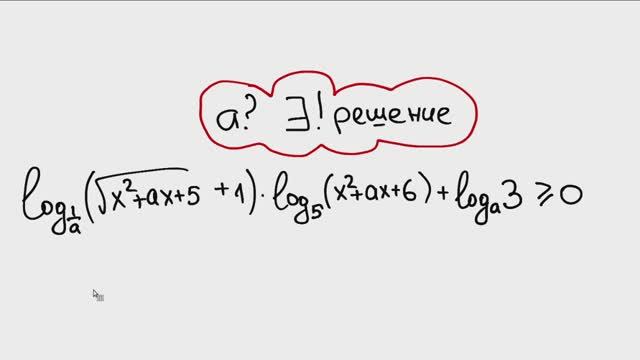 a? ∃! решение
log_{1/a}(√(x²+ax+5) +1)·log₅(x²+ax+6)+logₐ3 ⩾0